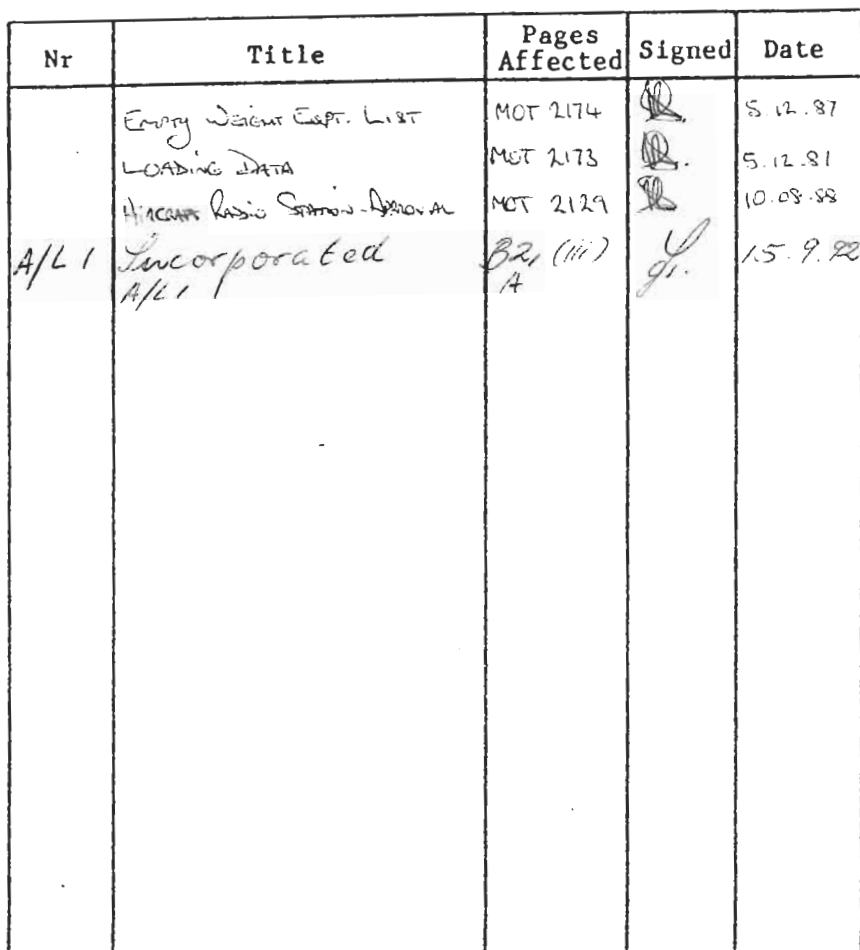 Nr Title Pages Affected Signed Date
Empty Weight Eqpt. List MOT 2174 5.12.87
Loading Data MOT 2173 5.12.81
Aircraft Radio Station-Approval MOT 2129 10.08.88
A/L 1 Incorporated B2, (iii) 15.9.92
A/L 1 A